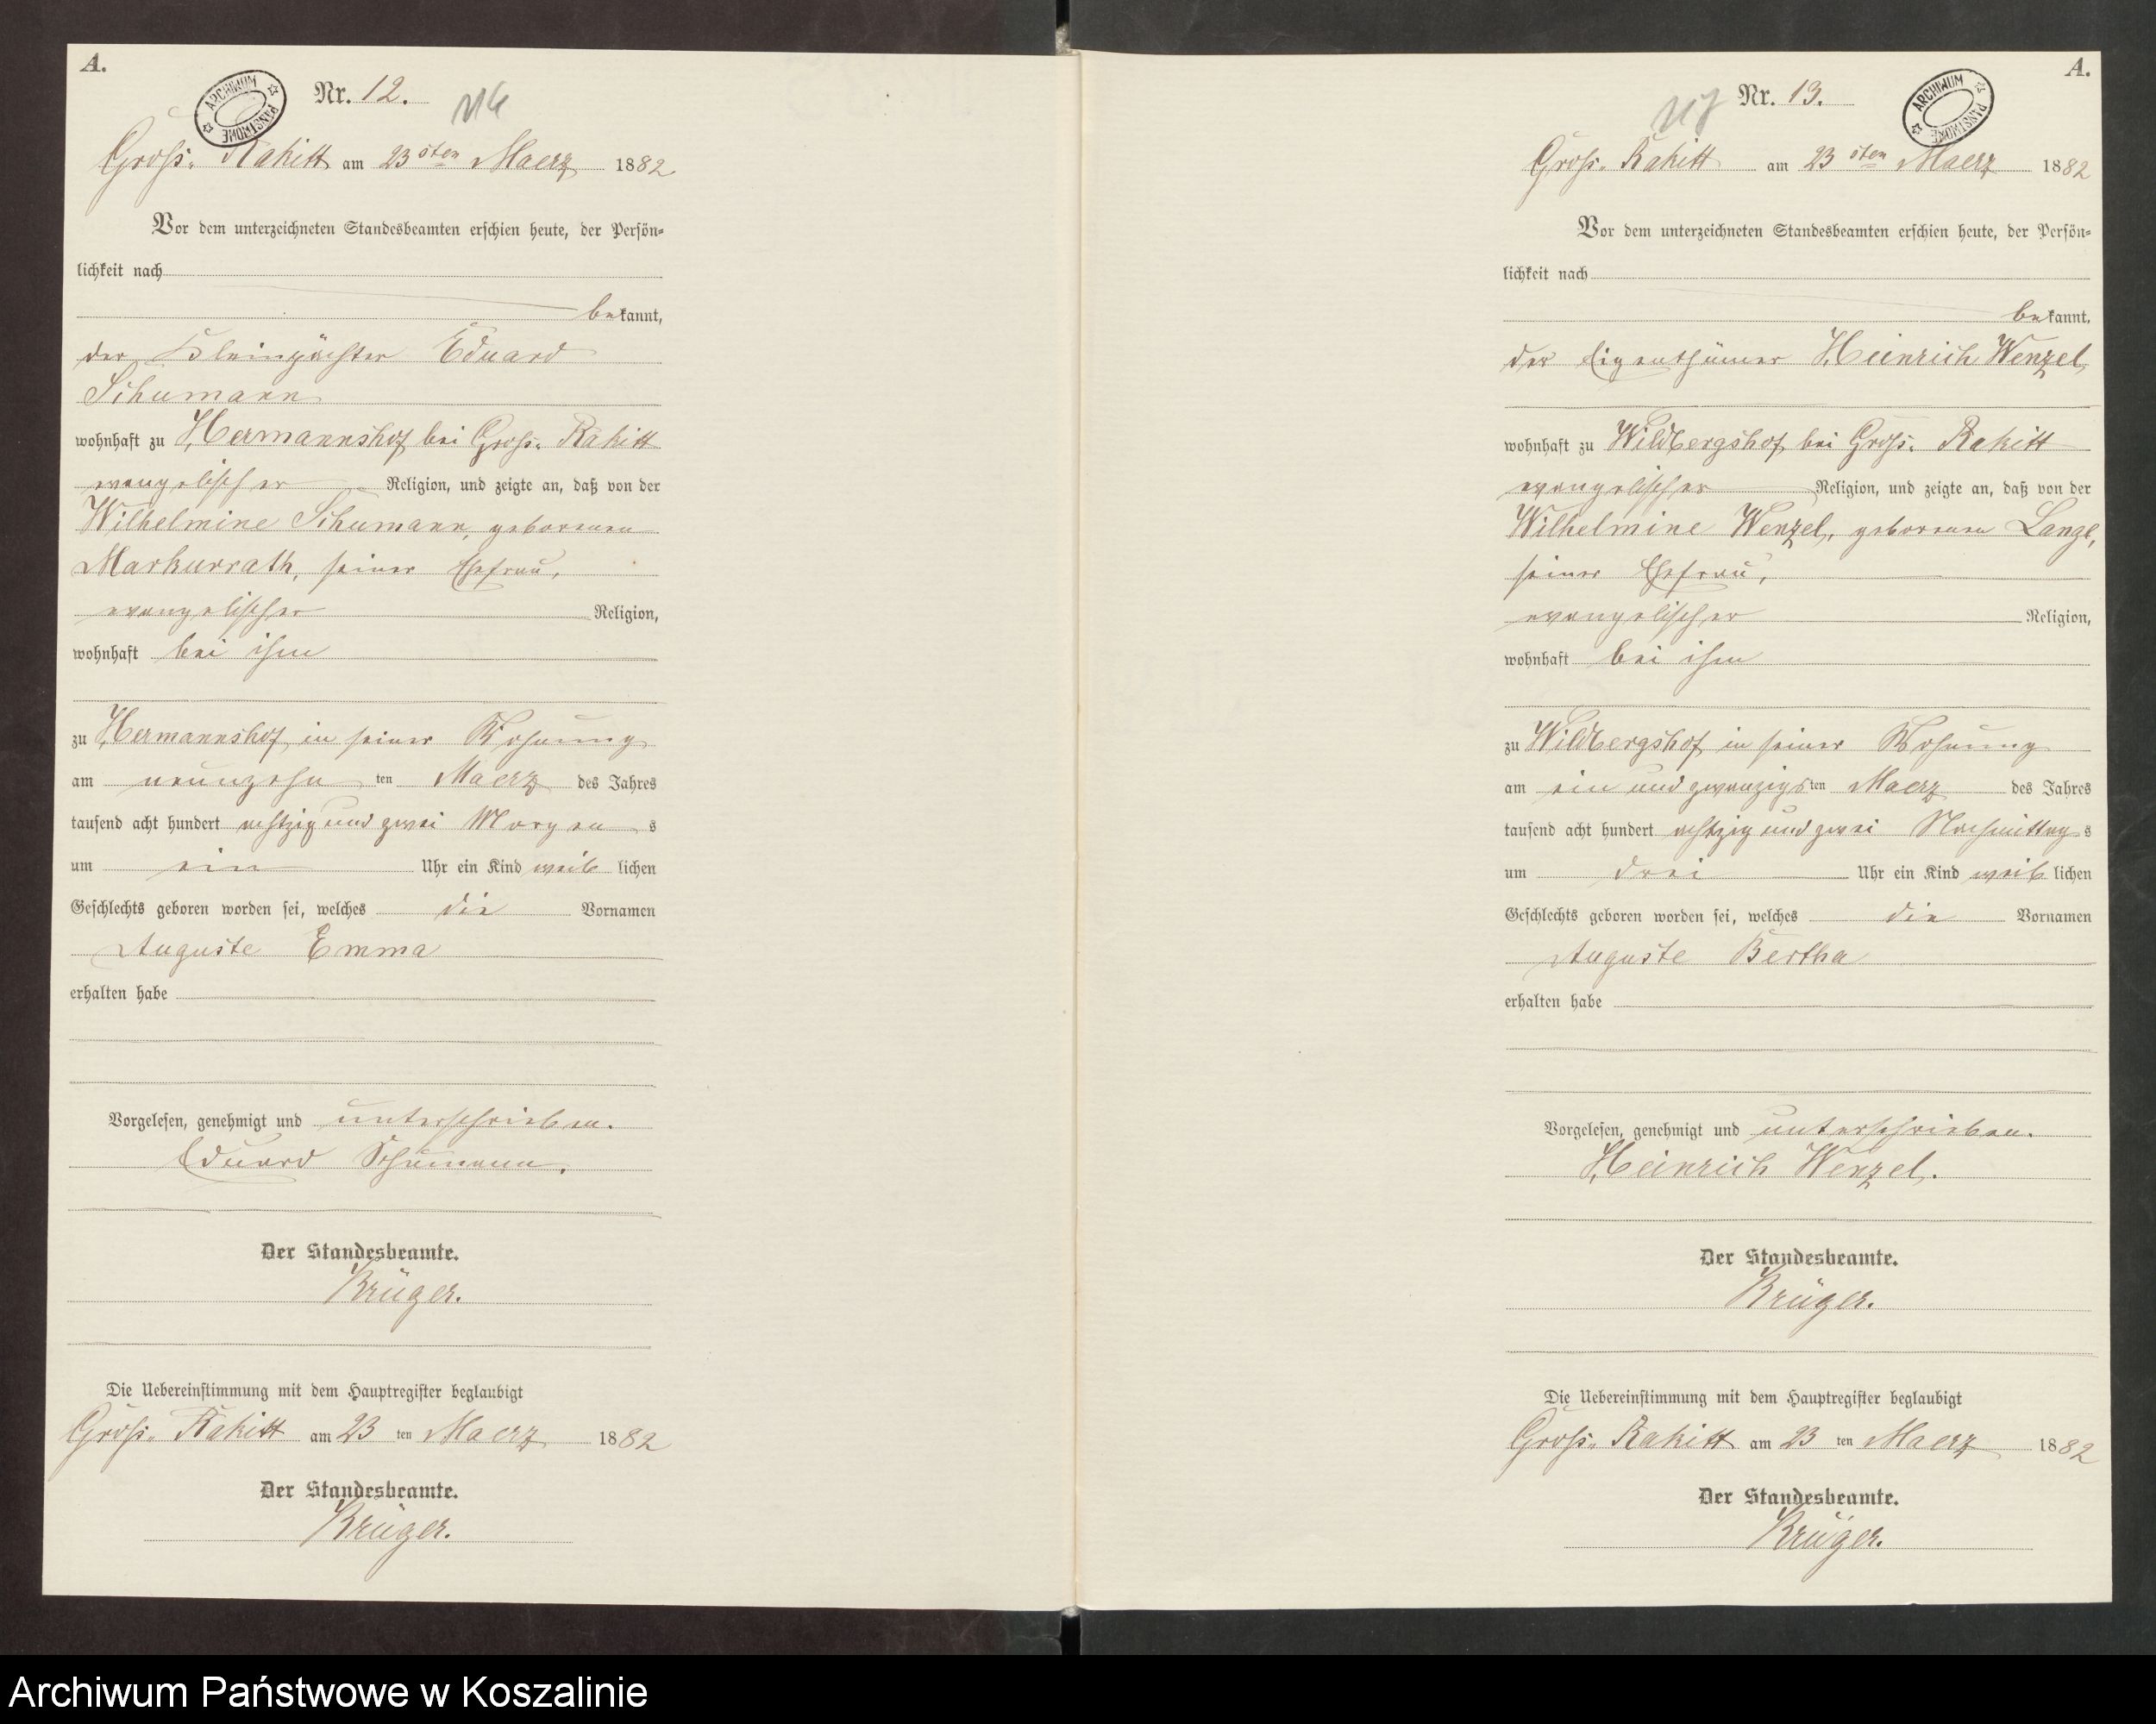 A.
ARCHIWUM PAŃSTWOWE
Nr. 12.
Gross-Rakitt am 23sten Maerz 1882
Vor dem unterzeichneten Standesbeamten erschien heute, der Persön=
lichkeit nach
bekannt,
der Kleinpächter Eduard
Schumann
wohnhaft zu Hermannshof bei Gross-Rakitt
evangelischer Religion, und zeigte an, daß von der
Wilhelmine Schumann, geborenen
Markurrath, seiner Ehefrau,
evangelischer Religion,
wohnhaft bei ihm
zu Hermannshof, in seiner Wohnung
am neunzehn ten Maerz des Jahres
tausend acht hundert achtzig und zwei Morgens
um ein Uhr ein Kind weiblichen
Geschlechts geboren worden sei, welches die Vornamen
Auguste Emma
erhalten habe
Vorgelesen, genehmigt und unterschrieben.
Eduard Schumann.
Der Standesbeamte.
Krüger.
Die Uebereinstimmung mit dem Hauptregister beglaubigt
Gross-Rakitt am 23 ten Maerz 1882
Der Standesbeamte.
Krüger.
A.
ARCHIWUM PAŃSTWOWE
Nr. 13.
Gross-Rakitt am 23sten Maerz 1882
Vor dem unterzeichneten Standesbeamten erschien heute, der Persön=
lichkeit nach
bekannt,
der Eigenthümer Heinrich Wenzel,
wohnhaft zu Wildbergshof bei Gross-Rakitt
evangelischer Religion, und zeigte an, daß von der
Wilhelmine Wenzel, geborenen Lange,
seiner Ehefrau,
evangelischer Religion,
wohnhaft bei ihm
zu Wildbergshof in seiner Wohnung
am ein und zwanzigsten Maerz des Jahres
tausend acht hundert achtzig und zwei Nachmittags
um drei Uhr ein Kind weiblichen
Geschlechts geboren worden sei, welches die Vornamen
Auguste Bertha
erhalten habe
Vorgelesen, genehmigt und unterschrieben.
Heinrich Wenzel.
Der Standesbeamte.
Krüger.
Die Uebereinstimmung mit dem Hauptregister beglaubigt
Gross-Rakitt am 23 ten Maerz 1882
Der Standesbeamte.
Krüger.
Archiwum Państwowe w Koszalinie